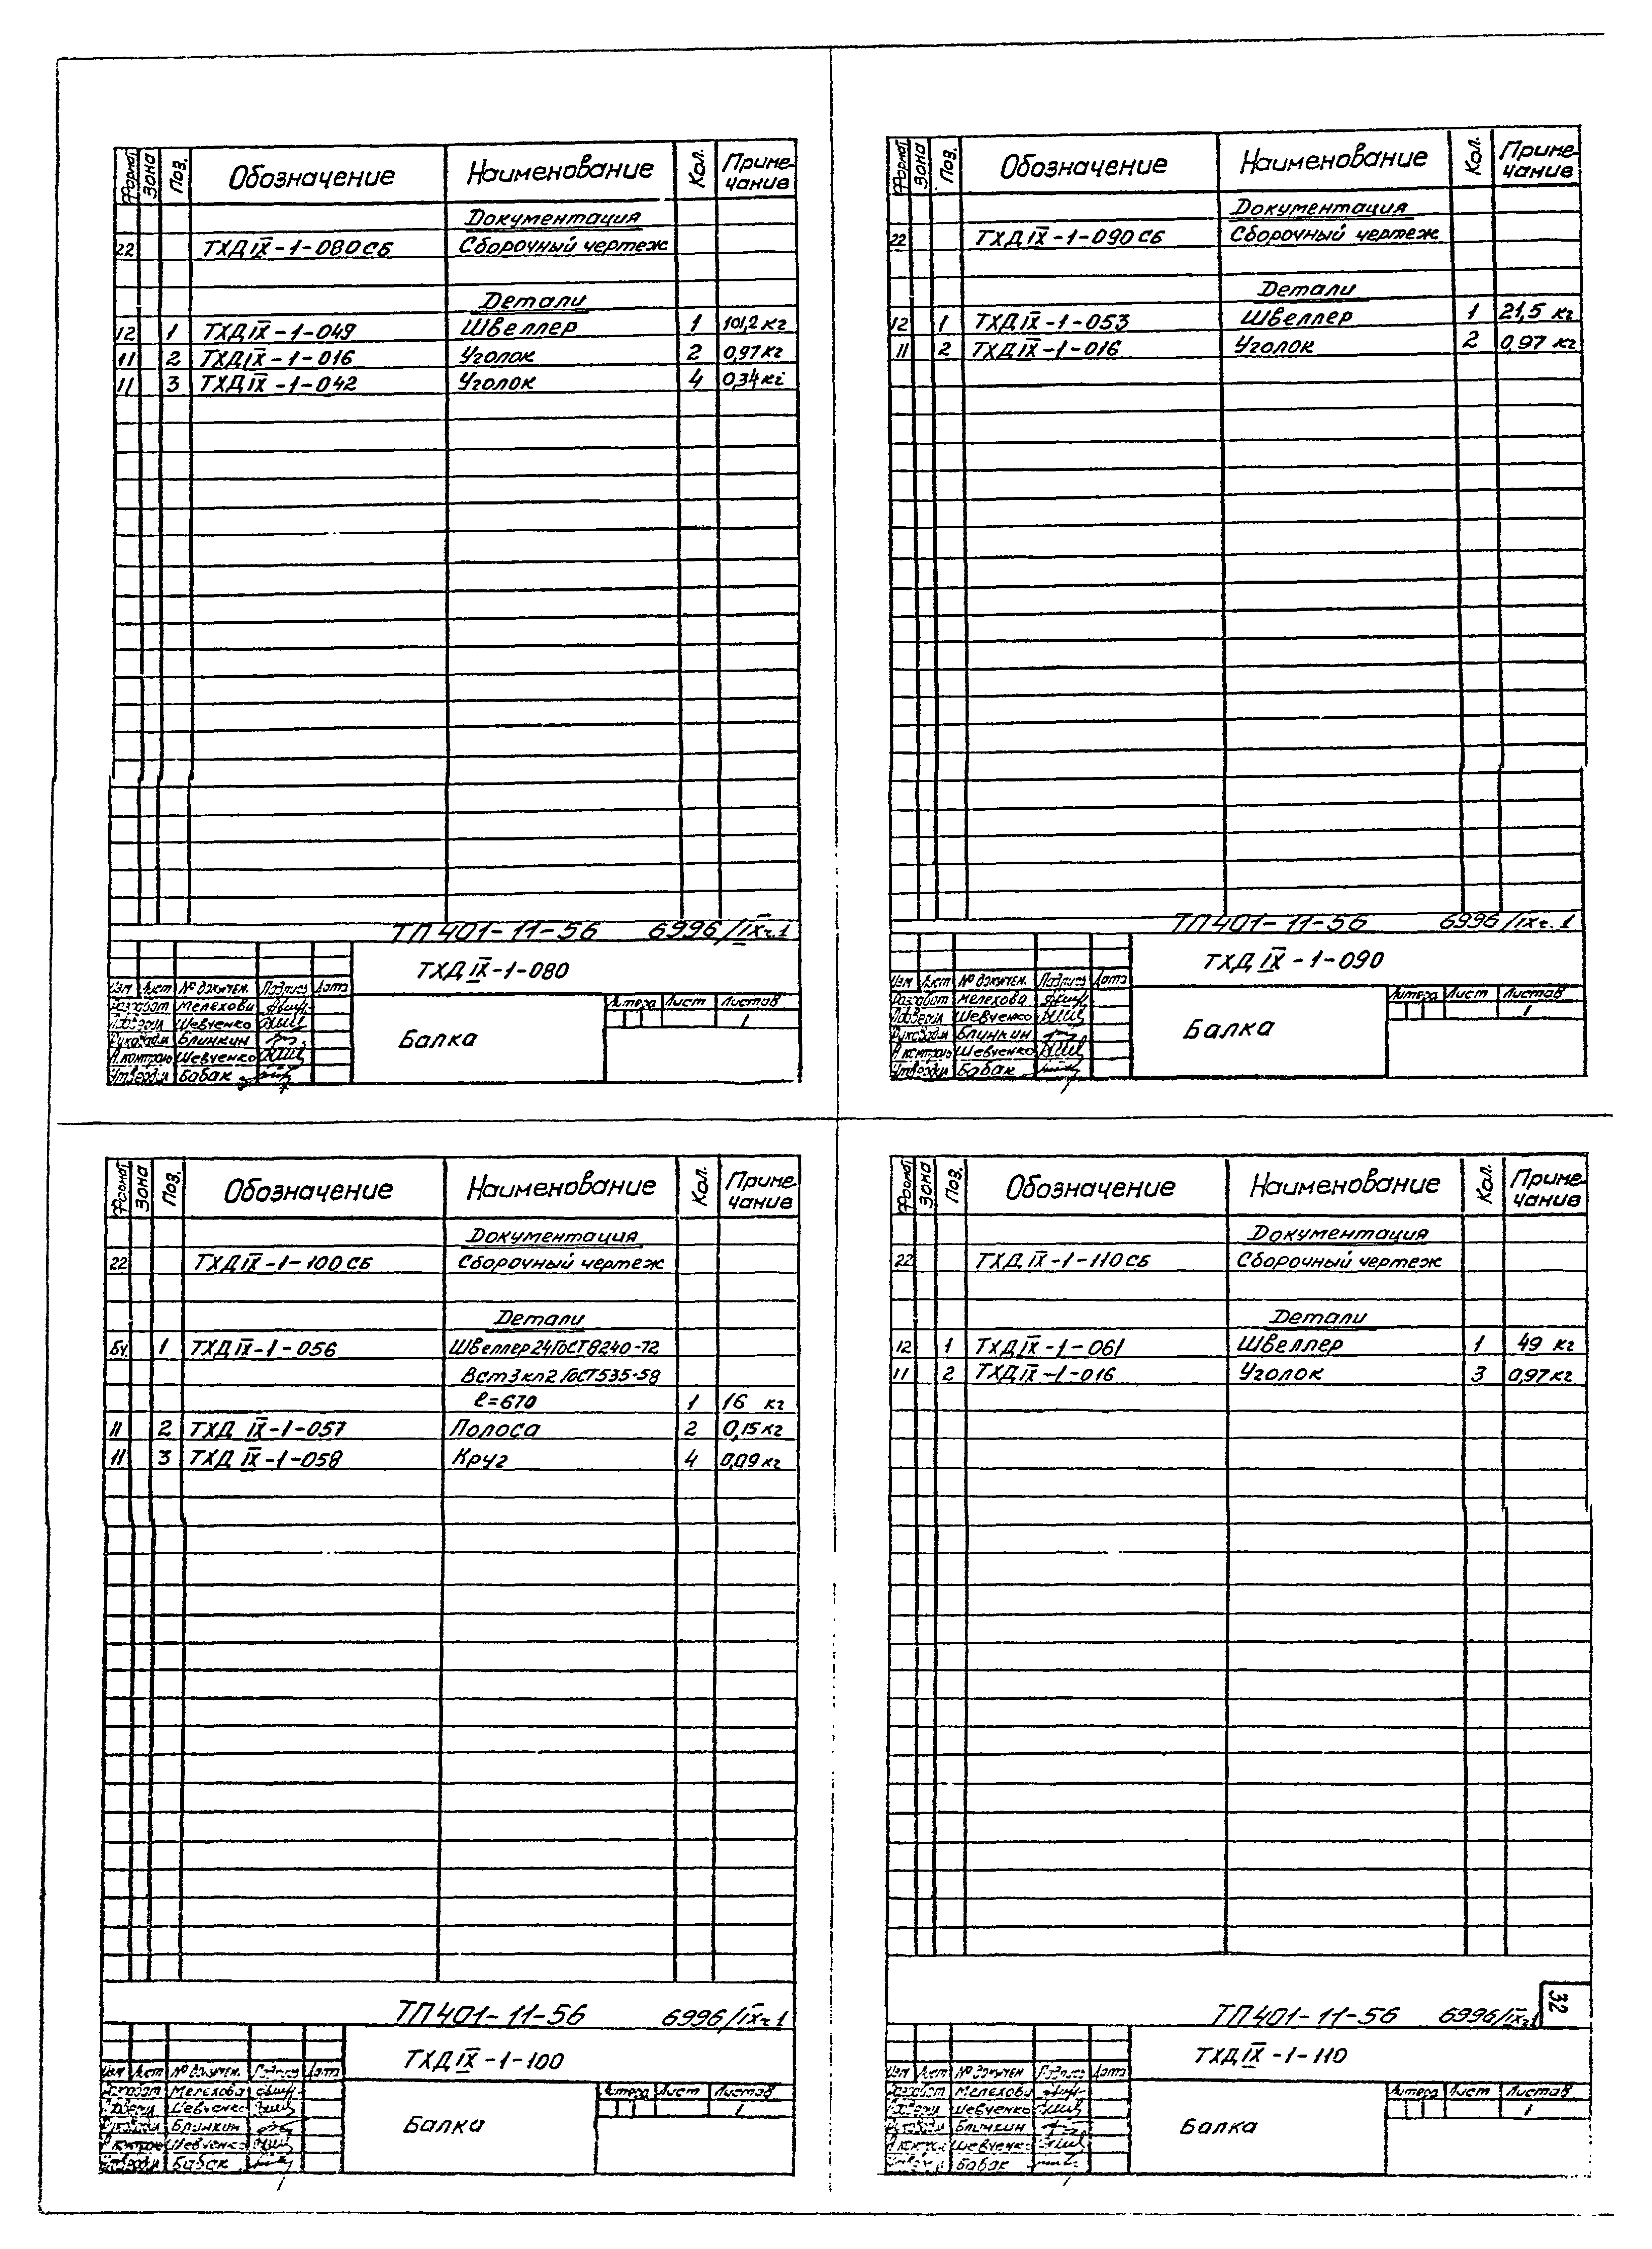 Формат Зона Поз. Обозначение Наименование Кол. Приме-
чание
Документация
22 ТХД IX-1-080 СБ Сборочный чертеж
Детали
12 1 ТХД IX-1-049 Швеллер 1 101,2 кг
11 2 ТХД IX-1-016 Уголок 2 0,97 кг
11 3 ТХД IX-1-042 Уголок 4 0,34 кг
ТП 401-11-56 6996/IX ч.1
ТХД IX-1-080
Изм Лист № докумен. Подпись Дата
Разработ Мелехова
Проверил Шевченко
Рук.задан Блинкин
Н.контроль Шевченко
Утвердил Бабак
Балка
Литера Лист Листов
1
Формат Зона Поз. Обозначение Наименование Кол. Приме-
чание
Документация
22 ТХД IX-1-090 СБ Сборочный чертеж
Детали
12 1 ТХД IX-1-053 Швеллер 1 21,5 кг
11 2 ТХД IX-1-016 Уголок 2 0,97 кг
ТП 401-11-56 6996/IX ч.1
ТХД IX-1-090
Изм Лист № докумен. Подпись Дата
Разработ Мелехова
Проверил Шевченко
Блинкин
Н.контроль Шевченко
Утвердил Бабак
Балка
Литера Лист Листов
1
Формат Зона Поз. Обозначение Наименование Кол. Приме-
чание
Документация
22 ТХД IX-1-100 СБ Сборочный чертеж
Детали
БЧ. 1 ТХД IX-1-056 Швеллер 24 ГОСТ 8240-72
Вст3кп2 ГОСТ 535-58
ℓ=670 1 16 кг
11 2 ТХД IX-1-057 Полоса 2 0,15 кг
11 3 ТХД IX-1-058 Круг 4 0,09 кг
ТП 401-11-56 6996/IX ч.1
ТХД IX-1-100
Изм Лист № докумен. Подпись Дата
Разработ Мелехова
Шевченко
Блинкин
Н.контроль Шевченко
Утвердил Бабак
Балка
Литера Лист Листов
1
Формат Зона Поз. Обозначение Наименование Кол. Приме-
чание
Документация
22 ТХД IX-1-110 СБ Сборочный чертеж
Детали
12 1 ТХД IX-1-061 Швеллер 1 49 кг
11 2 ТХД IX-1-016 Уголок 3 0,97 кг
32
ТП 401-11-56 6996/IX ч.1
ТХД IX-1-110
Изм Лист № докумен. Подпись Дата
Разработ Мелехова
Шевченко
Блинкин
Шевченко
Бабак
Балка
Литера Лист Листов
1